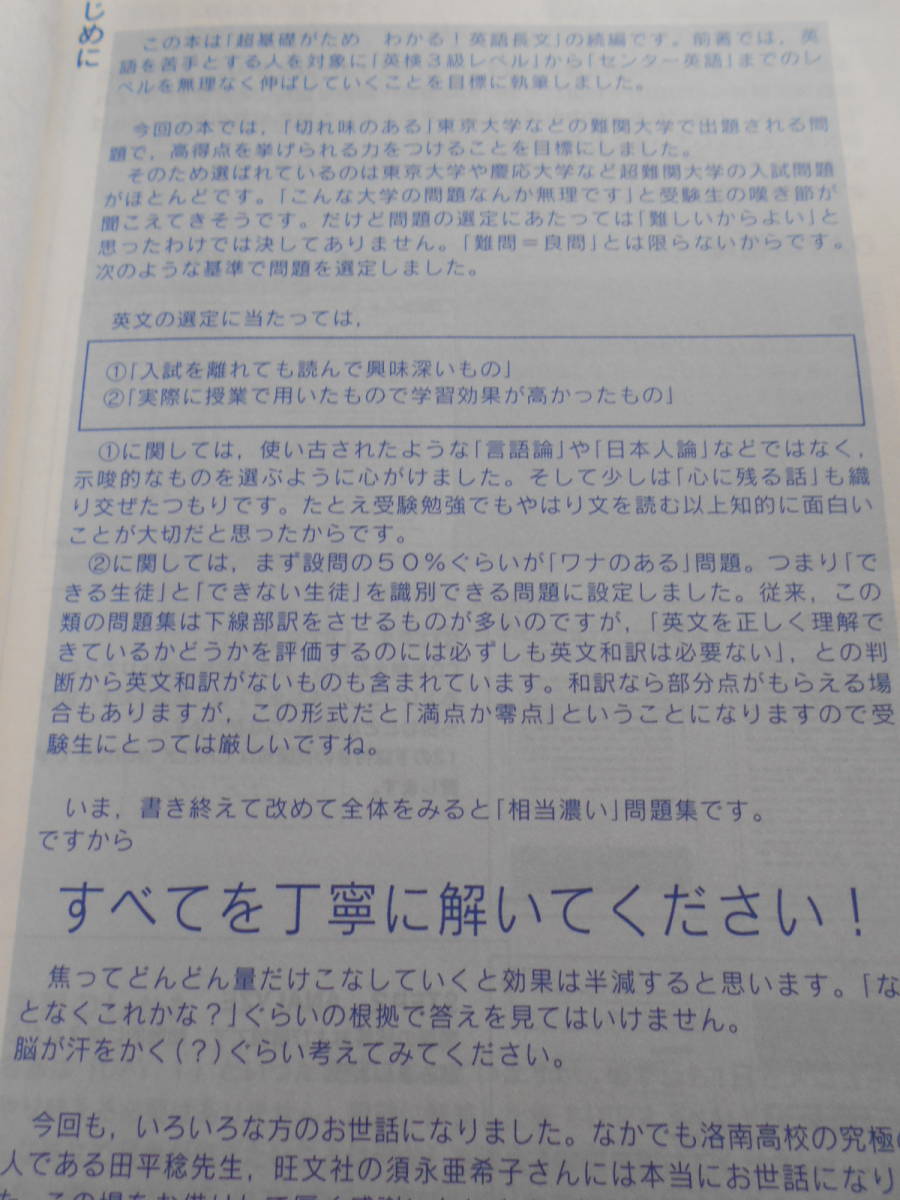 じめに
この本は「超基礎がため わかる！英語長文」の続編です。前著では，英
語を苦手とする人を対象に「英検３級レベル」から「センター英語」までのレ
ベルを無理なく伸ばしていくことを目標に執筆しました。
今回の本では，「切れ味のある」東京大学などの難関大学で出題される問
題で，高得点を挙げられる力をつけることを目標にしました。
そのため選ばれているのは東京大学や慶応大学など超難関大学の入試問題
がほとんどです。「こんな大学の問題なんか無理です」と受験生の嘆き節が
聞こえてきそうです。だけど問題の選定にあたっては「難しいからよい」と
思ったわけでは決してありません。「難問＝良問」とは限らないからです。
次のような基準で問題を選定しました。
英文の選定に当たっては，
①「入試を離れても読んで興味深いもの」
②「実際に授業で用いたもので学習効果が高かったもの」
①に関しては，使い古されたような「言語論」や「日本人論」などではなく，
示唆的なものを選ぶように心がけました。そして少しは「心に残る話」も織
り交ぜたつもりです。たとえ受験勉強でもやはり文を読む以上知的に面白い
ことが大切だと思ったからです。
②に関しては，まず設問の５０％ぐらいが「ワナのある」問題。つまり「で
きる生徒」と「できない生徒」を識別できる問題に設定しました。従来，この
類の問題集は下線部訳をさせるものが多いのですが，「英文を正しく理解で
きているかどうかを評価するのには必ずしも英文和訳は必要ない」，との判
断から英文和訳がないものも含まれています。和訳なら部分点がもらえる場
合もありますが，この形式だと「満点か零点」ということになりますので受
験生にとっては厳しいですね。
いま，書き終えて改めて全体をみると「相当濃い」問題集です。
ですから
すべてを丁寧に解いてください！
焦ってどんどん量だけこなしていくと効果は半減すると思います。「な
となくこれかな？」ぐらいの根拠で答えを見てはいけません。
脳が汗をかく（？）ぐらい考えてみてください。
今回も，いろいろな方のお世話になりました。なかでも洛南高校の究極
人である田平稔先生，旺文社の須永亜希子さんには本当にお世話になり